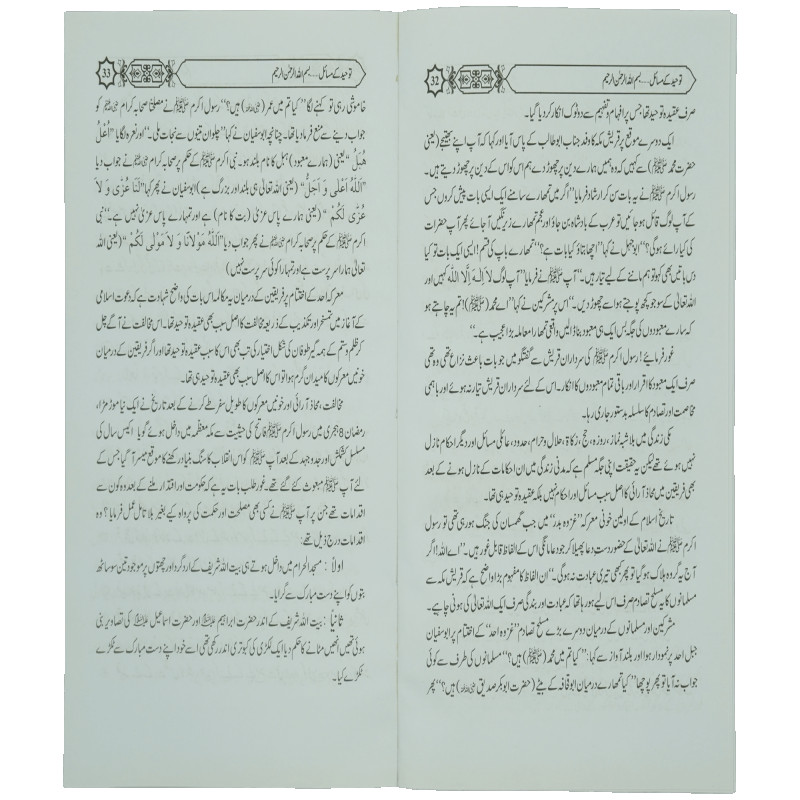 توحید کے مسائل.....بسم اللہ الرحمٰن الرحیم
32
صرف عقیدہ توحید تھا جس پر افہام و تفہیم سے دو ٹوک انکار کر دیا گیا۔
ایک دوسرے موقع پر قریش مکہ کا وفد جناب ابوطالب کے پاس آیا اور کہا کہ آپ اپنے بھتیجے (یعنی
حضرت محمد ﷺ) سے کہیں کہ وہ ہمیں ہمارے دین پر چھوڑ دے ہم اس کو اس کے دین پر چھوڑ دیتے ہیں۔
رسول اکرم ﷺ نے یہ بات سن کر ارشاد فرمایا ’’اگر میں تمہارے سامنے ایک ایسی بات پیش کروں جس
کے آپ لوگ قائل ہو جائیں تو عرب کے بادشاہ بن جاؤ اور عجم تمہارے زیر نگیں آ جائے پھر آپ حضرات
کی کیا رائے ہو گی؟‘‘ ابوجہل نے کہا ’’اچھا بتاؤ کیا بات ہے؟‘‘ تمہارے باپ کی قسم! ایسی ایک بات تو کیا
دس باتیں بھی کہو تو ہم ماننے کے لئے تیار ہیں۔‘‘ آپ ﷺ نے فرمایا ’’آپ لوگ لَا اِلٰہَ اِلَّا اللّٰہ کہیں اور
اللہ تعالیٰ کے سوا جو کچھ پوجتے ہو اسے چھوڑ دیں۔‘‘ اس پر مشرکین نے کہا ’’اے محمد (ﷺ)! تم یہ چاہتے ہو
کہ سارے معبودوں کی جگہ بس ایک ہی معبود بنا ڈالیں واقعی تمہارا معاملہ بڑا عجیب ہے۔‘‘
غور فرمائیے! رسول اکرم ﷺ کی سرداران قریش سے گفتگو میں جو بات باعث نزاع تھی وہ تھی
صرف ایک معبود کا اقرار اور باقی تمام معبودوں کا انکار۔ اس کے لئے سرداران قریش تیار نہ ہوئے اور باہمی
مخاصمت اور تصادم کا سلسلہ بدستور جاری رہا۔
مکی زندگی میں بلاشبہ نماز، روزہ، حج، زکاۃ، حلال و حرام، حدود، عائلی مسائل اور دیگر احکام نازل
نہیں ہوئے تھے لیکن یہ حقیقت اپنی جگہ مسلم ہے کہ مدنی زندگی میں ان احکامات کے نازل ہونے کے بعد
بھی فریقین میں محاذ آرائی کا اصل سبب مسائل اور احکام نہیں بلکہ عقیدہ توحید ہی تھا۔
تاریخ اسلام کے اولین خونی معرکہ ’’غزوہ بدر‘‘ میں جب گھمسان کی جنگ ہو رہی تھی تو رسول
اکرم ﷺ نے اللہ تعالیٰ کے حضور دست دعا پھیلا کر جو دعا مانگی اس کے الفاظ قابل غور ہیں۔ ’’اے اللہ! اگر
آج یہ گروہ ہلاک ہو گیا تو پھر کبھی تیری عبادت نہ ہو گی۔‘‘ ان الفاظ کا مفہوم بڑا واضح ہے کہ قریش مکہ سے
مسلمانوں کا یہ مسلح تصادم صرف اس لئے ہو رہا تھا کہ عبادت اور بندگی صرف ایک اللہ تعالیٰ کی ہونی چاہئے۔
مشرکین اور مسلمانوں کے درمیان دوسرے بڑے مسلح تصادم ’’غزوہ احد‘‘ کے اختتام پر ابوسفیان
جبل احد پر نمودار ہوا اور بلند آواز سے کہا: ’’کیا تم میں محمد (ﷺ) ہیں؟‘‘ مسلمانوں کی طرف سے کوئی
جواب نہ آیا تو پھر پوچھا ’’کیا تمہارے درمیان ابوقحافہ کے بیٹے (حضرت ابوبکر صدیق ؓ) ہیں؟‘‘ پھر
توحید کے مسائل.....بسم اللہ الرحمٰن الرحیم
33
خاموشی رہی تو کہنے لگا ’’کیا تم میں عمر (ؓ) ہیں؟‘‘ رسول اکرم ﷺ نے مصلحتاً صحابہ کرام ؓ کو
جواب دینے سے منع فرما دیا تھا۔ چنانچہ ابوسفیان نے کہا ’’چلو ان تینوں سے نجات ملی۔‘‘ اور نعرہ لگایا ’’اُعْلُ
ھُبَلُ‘‘ (یعنی ہمارے معبود) ہبل کا نام بلند ہو۔ نبی اکرم ﷺ کے حکم پر صحابہ کرام ؓ نے جواب دیا
’’اَللّٰہُ اَعْلٰی وَ اَجَلُّ‘‘ (یعنی اللہ تعالیٰ ہی بلند اور بزرگ ہے) ابوسفیان نے پھر کہا ’’لَنَا عُزّٰی وَ لَا
عُزّٰی لَکُمْ‘‘ (یعنی ہمارے پاس عزیٰ (بت کا نام) ہے اور تمہارے پاس عزیٰ نہیں ہے۔‘‘ نبی
اکرم ﷺ کے حکم پر صحابہ کرام ؓ نے پھر جواب دیا ’’اَللّٰہُ مَوْلَانَا وَ لَا مَوْلٰی لَکُمْ‘‘ (یعنی اللہ
تعالیٰ ہمارا سرپرست ہے اور تمہارا کوئی سرپرست نہیں)
معرکہ احد کے اختتام پر فریقین کے درمیان یہ مکالمہ اس بات کی واضح شہادت ہے کہ دعوت اسلامی
کے آغاز میں تمسخر اور تکذیب کے ذریعہ مخالفت کا اصل سبب بھی عقیدہ توحید تھا۔ اس مخالفت نے آگے چل
کر ظلم و ستم کے ہمہ گیر طوفان کی شکل اختیار کی تب بھی اس کا سبب عقیدہ توحید تھا اور اگر فریقین کے درمیان
خونیں معرکوں کا میدان گرم ہوا تو اس کا اصل سبب بھی عقیدہ توحید ہی تھا۔
مخالفت، محاذ آرائی اور خونیں معرکوں کا طویل سفر طے کرنے کے بعد تاریخ نے ایک نیا موڑ مڑا،
رمضان 8 ہجری میں رسول اکرم ﷺ فاتح کی حیثیت سے مکہ معظمہ میں داخل ہوئے گویا اکیس سال کی
مسلسل کشمکش اور جدوجہد کے بعد آپ ﷺ کو اس انقلاب کا سنگ بنیاد رکھنے کا موقع میسر آ گیا جس کے
لئے آپ ﷺ مبعوث کئے گئے تھے۔ غور طلب بات یہ ہے کہ حکومت اور اقتدار ملنے کے بعد وہ کون سے
اقدامات تھے جن پر آپ ﷺ نے کسی بھی مصلحت اور حکمت کی پرواہ کئے بغیر بلا تامل عمل فرمایا؟ وہ
اقدامات درج ذیل تھے:
اولاً : مسجد الحرام میں داخل ہوتے ہی بیت اللہ شریف کے ارد گرد اور چھتوں پر موجود تین سو ساٹھ
بتوں کو اپنے دست مبارک سے گرایا۔
ثانیاً : بیت اللہ شریف کے اندر حضرت ابراہیم علیہ السلام اور حضرت اسماعیل علیہ السلام کی تصاویر بنی
ہوئی تھیں انہیں مٹانے کا حکم دیا ایک لکڑی کی کبوتری اندر رکھی تھی اسے خود اپنے دست مبارک سے ٹکڑے
ٹکڑے کیا۔